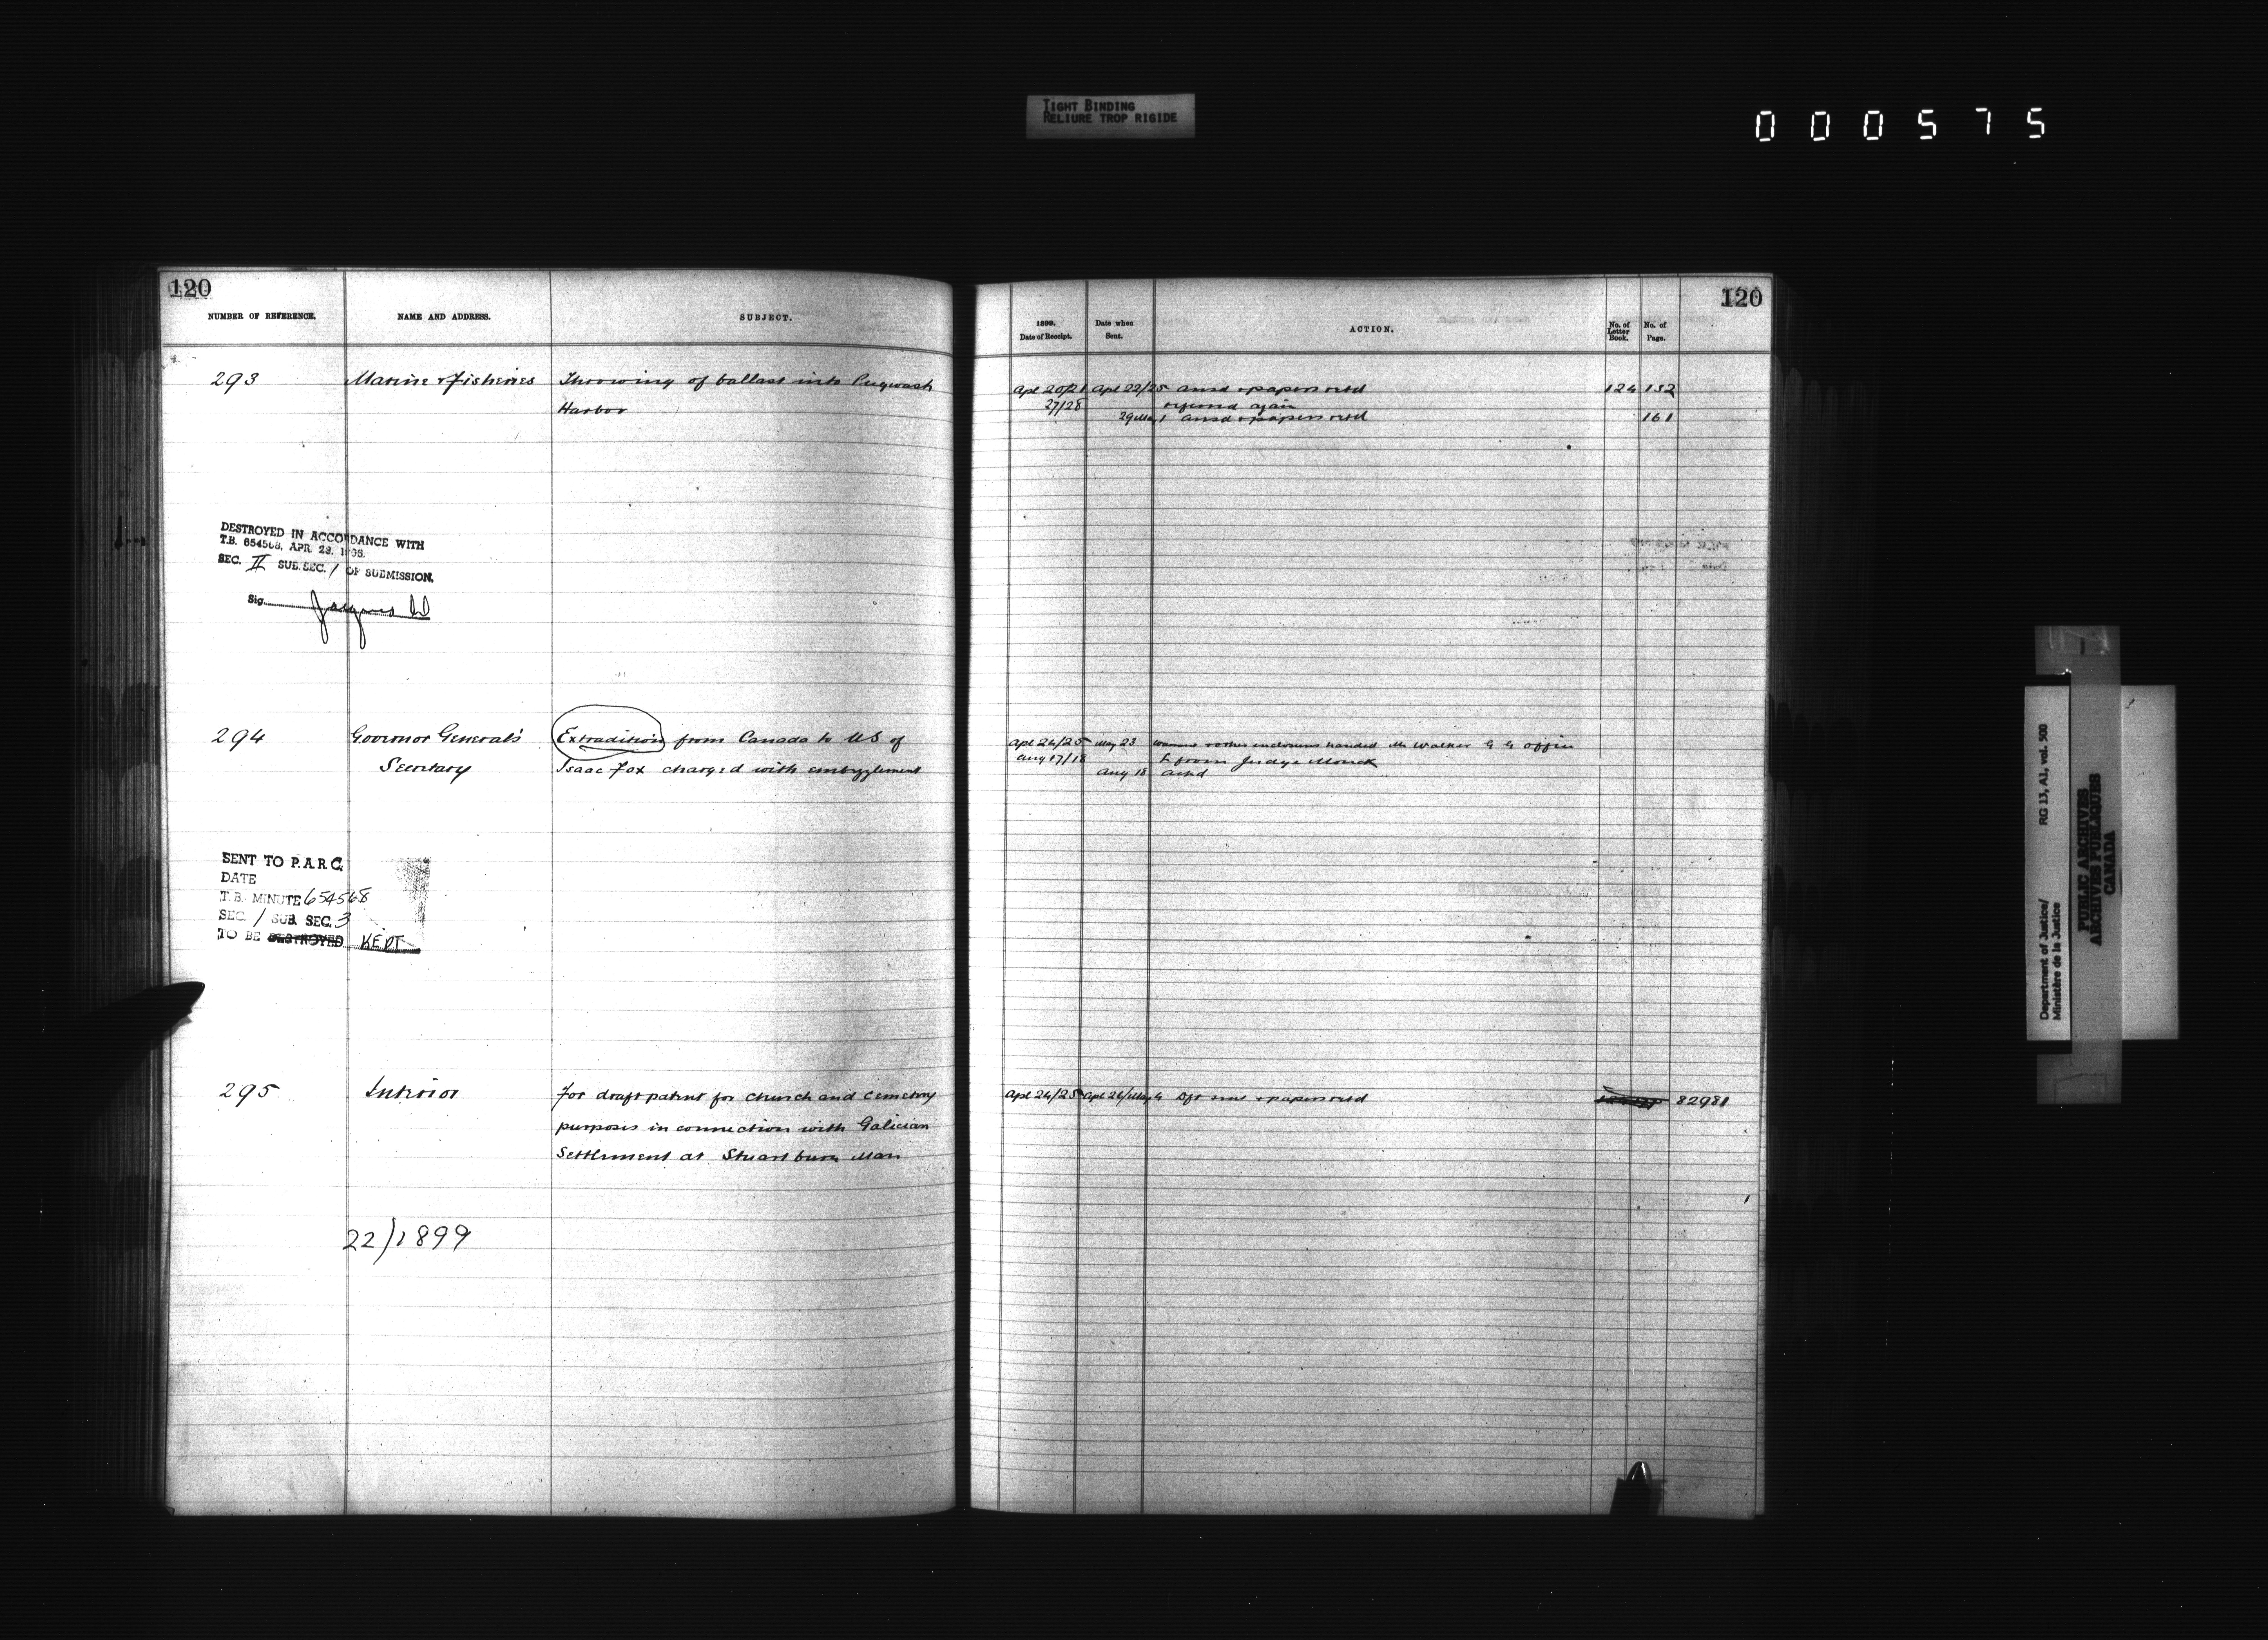 TIGHT BINDING
RELIURE TROP RIGIDE
000575
120
NUMBER OF REFERENCE. NAME AND ADDRESS. SUBJECT.
293 Marine & Fisheries Throwing of ballast into Pugwash
Harbor
DESTROYED IN ACCORDANCE WITH
T.B. 654568, APR. 28,
SEC. II SUB.SEC. 1 OF SUBMISSION.
Sig.
294 Governor General's Extradition from Canada to US of
Secretary Isaac Fox charged with embezzlement
SENT TO P.A.R.C.
DATE
T.B. MINUTE 654568
SEC. 1 SUB. SEC. 3
TO BE DESTROYED KEPT
295 Interior For draft patent for church and Cemetery
purposes in connection with Galician
Settlement at Stuartburn Man
22/1899
120
1899. Date of Receipt. Date when Sent. ACTION. No. of Letter Book. No. of Page.
Apl 20/21 Apl 22/25 ansd & papers retd 124 152
27/28 referred again
29 May 1 ansd & papers retd 161
Apl 24/25 May 23 & other enclosures handed Mr Walker G G office
Aug 17/18 L from Judge Monck
Aug 18 Ackd
Apl 24/25 Apl 26/May 4 Dft sent & papers retd 82981
Department of Justice/ RG 13, A1, vol. 500
Ministère de la Justice
PUBLIC ARCHIVES
ARCHIVES PUBLIQUES
CANADA